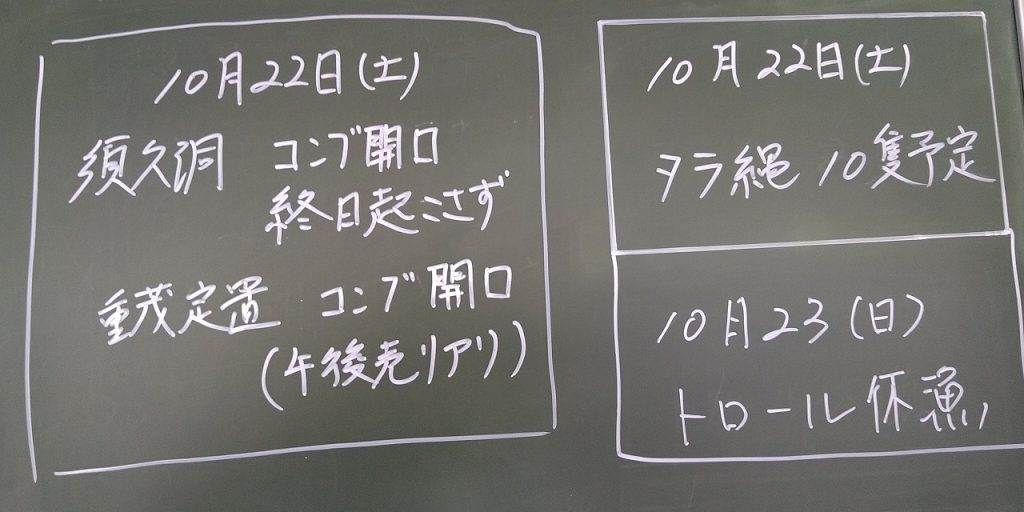 10月22日(土)
須久洞 コンブ開口
終日起こさず
重茂定置 コンブ開口
(午後売リアリ)
10月22日(土)
タラ縄 10隻予定
10月23(日)
トロール休漁